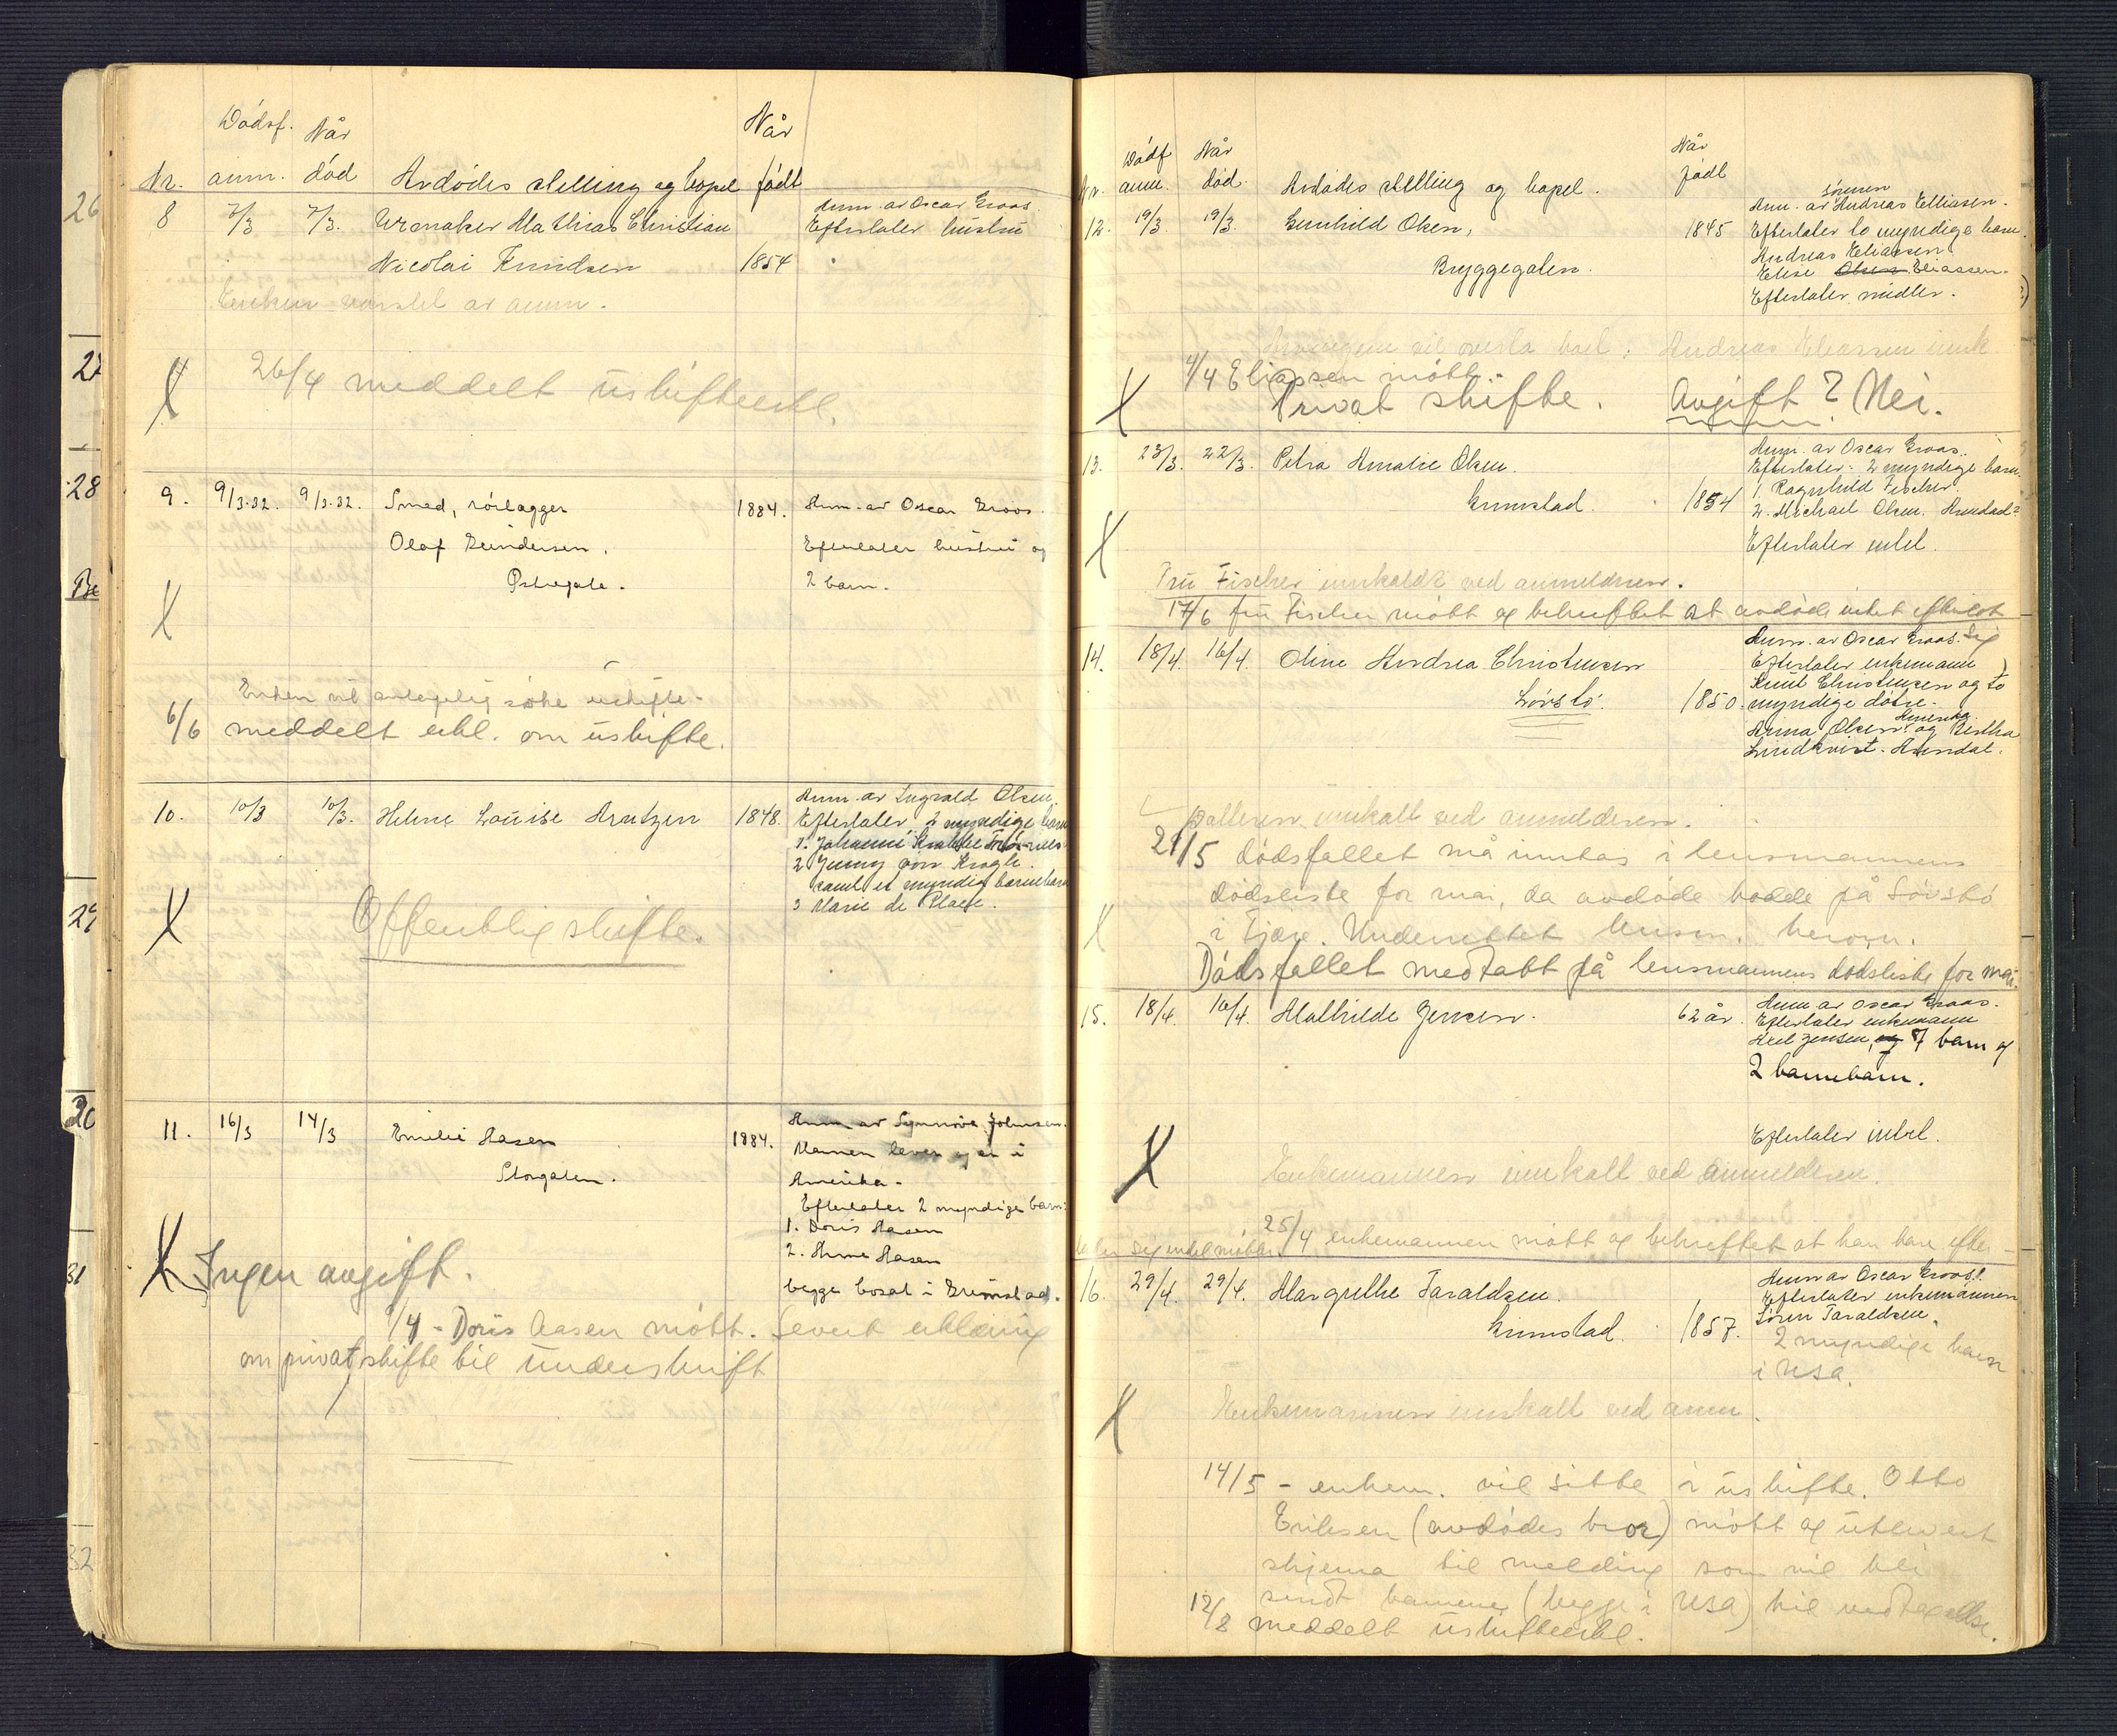 Dødsf. Når Når
Nr. anm. død Avdødes stilling og bopel født
8 7/3 7/3. Urmaker Mathias Christian Anm. av Oscar Groos.
Nicolai Knudsen 1854 Efterlater hustru
Enken varslet av anm.
26/4 meddelt uskifteerkl.
9. 9/3-32. 9/3-32. Smed, rørlegger 1884. Anm. av Oscar Groos.
Olaf Gundersen. Efterlater hustru og
Østregate. 2 barn.
Enken vil antagelig søke uskifte.
6/6 meddelt erkl. om uskifte.
10. 10/3 10/3. Helene Louise Arntzen 1848. Anm. av Ingvald Olsen.
Efterlater 2 myndige barn
1. Johanne
2 Jenny von Krogh.
samt et myndig barnebarn
3 Marie de Place.
Offentlig skifte.
11. 16/3 14/3 Emilie Aasen 1884. Anm. av Synnøve Johnsen.
Storgaten. Mannen lever og er i
Amerika.
Efterlater 2 myndige barn:
1. Doris Aasen
2. Arne Aasen
begge bosat i Grimstad.
Ingen avgift.
1/4 - Doris Aasen møtt. Levert erklæring
om privat skifte til underskrift
26
27
28
29
30
31
32
Dødsf Når Når
Nr. anm. død. Avdødes stilling og bopel. født
12. 19/3 19/3. Gunhild Olsen, 1845 Anm. av sønnen Andreas Elliasen.
Bryggegaten. Efterlater to myndige barn.
Andreas Eliassen
Elise Olsen Eliassen.
Efterlater midler.
vil overta boet. Andreas Eliassen innk
4/4 Eliassen møtt.
Privat skifte. Avgift? Nei.
13. 23/3. 22/3. Petra Amalie Olsen. Anm. av Oscar Groos.
Grimstad. 1854 Efterlater: 2 myndige barn.
1. Ragnhild Fischer.
2. Michael Olsen.
Efterlater intet.
Fru Fischer innkaldt ved anmeldersen.
17/6 fru Fischer møtt og bekreftet at avdøde intet efterlot
sig
14. 18/4. 16/4. Oline Andrea Christensen Anm. av Oscar Groos.
Løvstø. 1850. Efterlater enkemann
Knut Christensen og to
myndige døtre.
Anna Olsen Amerika og Bertha
Lindkvist. Arendal.
Datteren innkalt ved anmelderen.
21/5 dødsfallet må inntas i lensmannens
dødsliste for mai, da avdøde bodde på Løvstø
i Fjære. Underrettet lensm. herom.
Dødsfallet medtatt på lensmannens dødsliste for mai.
15. 18/4. 16/4. Mathilde Jensen. 62 år. Anm av Oscar Groos.
Efterlater enkemann
Axel Jensen, og 7 barn og
2 barnebarn.
Efterlater intet.
Enkemannen innkalt ved anmelderen.
25/4 enkemannen møtt og bekreftet at han hun efter
16. 29/4. 29/4. Margrethe Taraldsen. Anm av Oscar Groos.
Grimstad. 1857. Efterlater enkemannen
Søren Taraldsen.
2 myndige barn
i USA.
Enkemannen innkalt ved anm.
14/5 - enkem. vil sitte i uskifte. Otto
Eriksen (avdødes bror) møtt og utlevert
skjema til melding som vil bli
sendt barnene (begge i USA) til vedtagelse.
12/8 meddelt uskifteerkl.